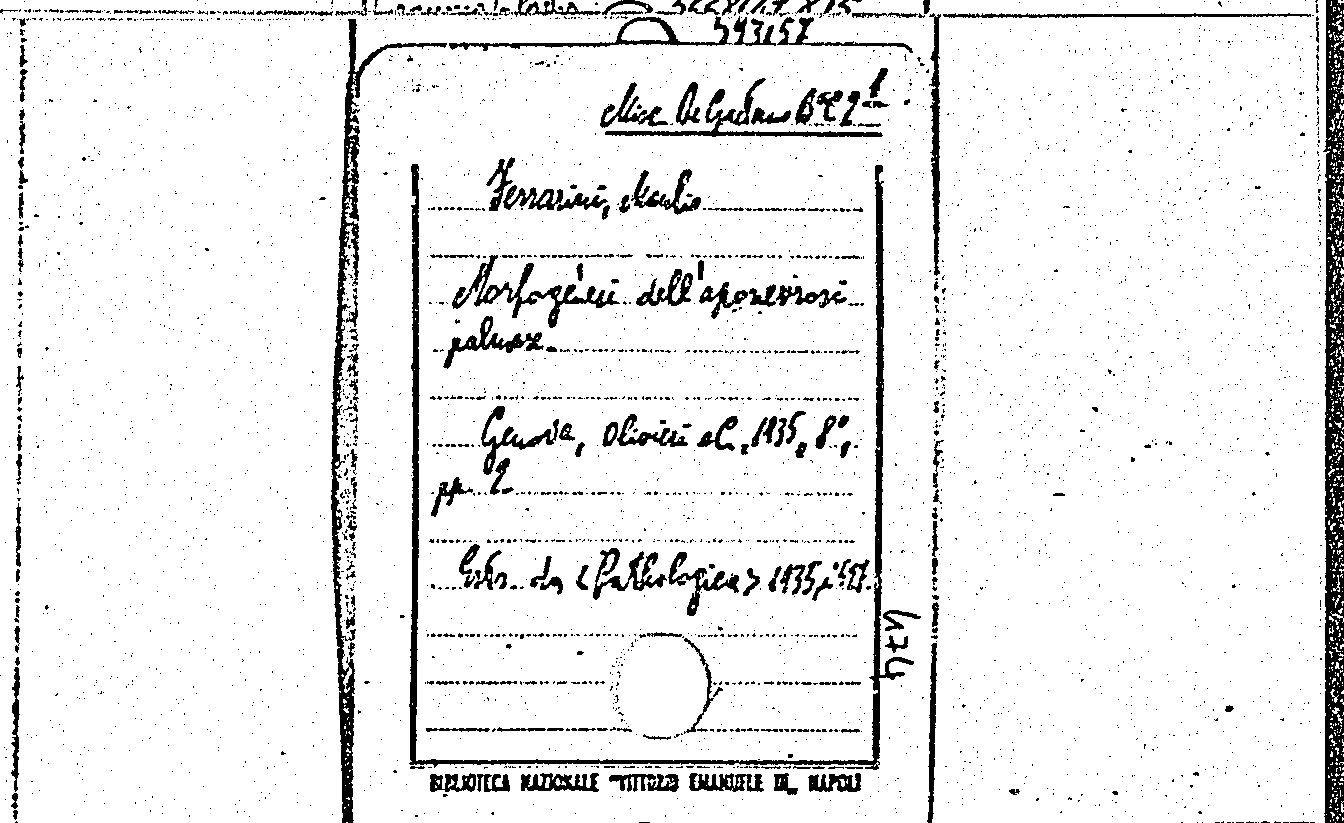 593157
Misc. De Gaetano B
Ferrarini, Manlio
Morfogenesi dell'aponevrosi
palmare.
Genova, Olivieri e C., 1935, 8°,
pp. 2
Estr. da <Pathologica> 1935,
474
BIBLIOTECA NAZIONALE VITTORIO EMANUELE III_ NAPOLI